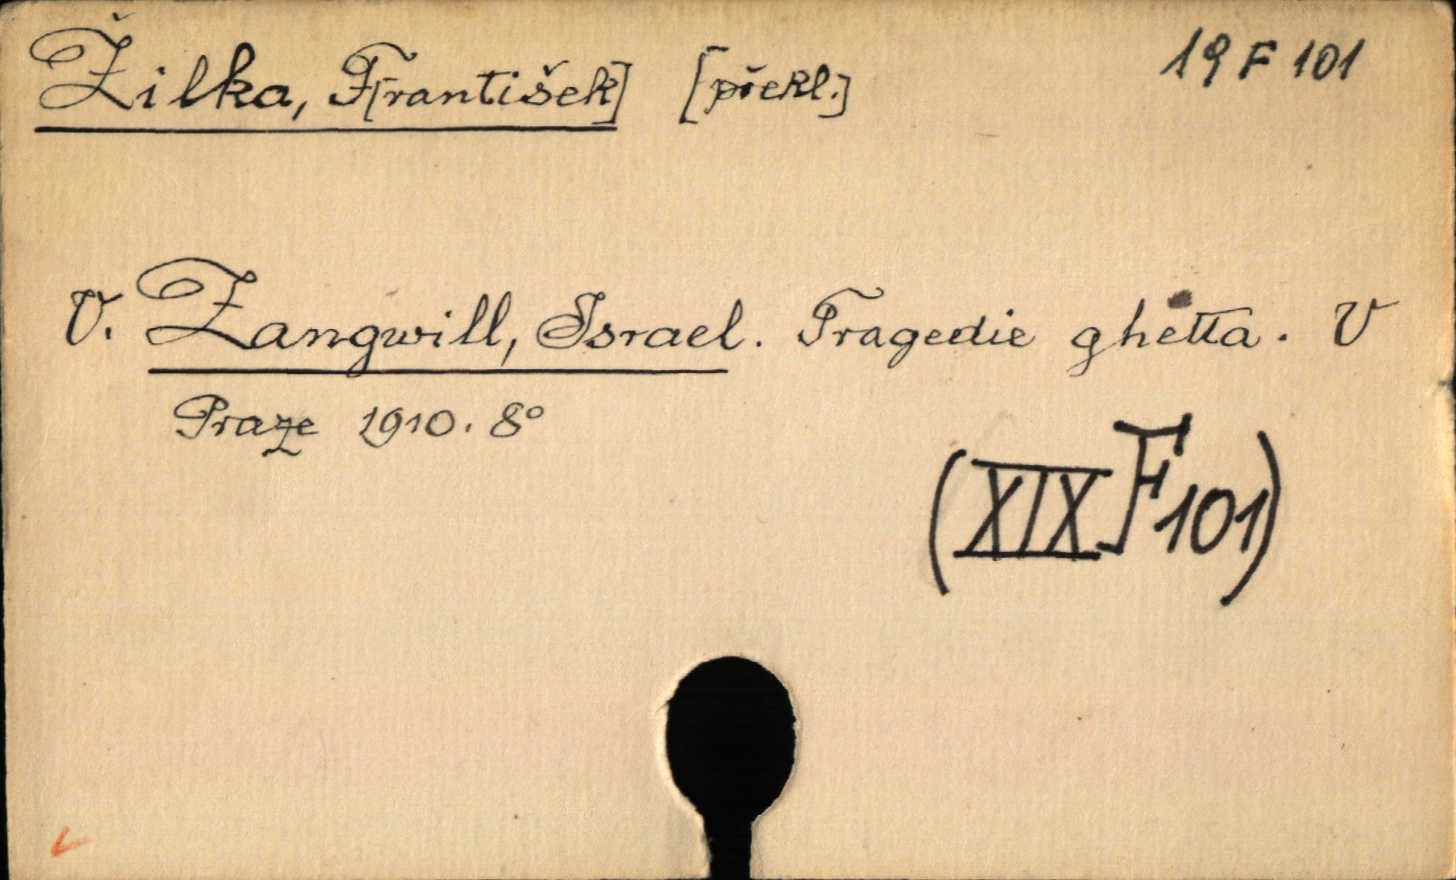 Žilka, F[rantišek] [překl.] 19 F 101
V. Zangwill, Israel. Tragedie ghetta. V
Praze 1910. 8°
(XIX F 101)